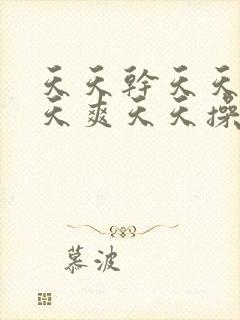 天天幹天天
天爽天天操
慕波